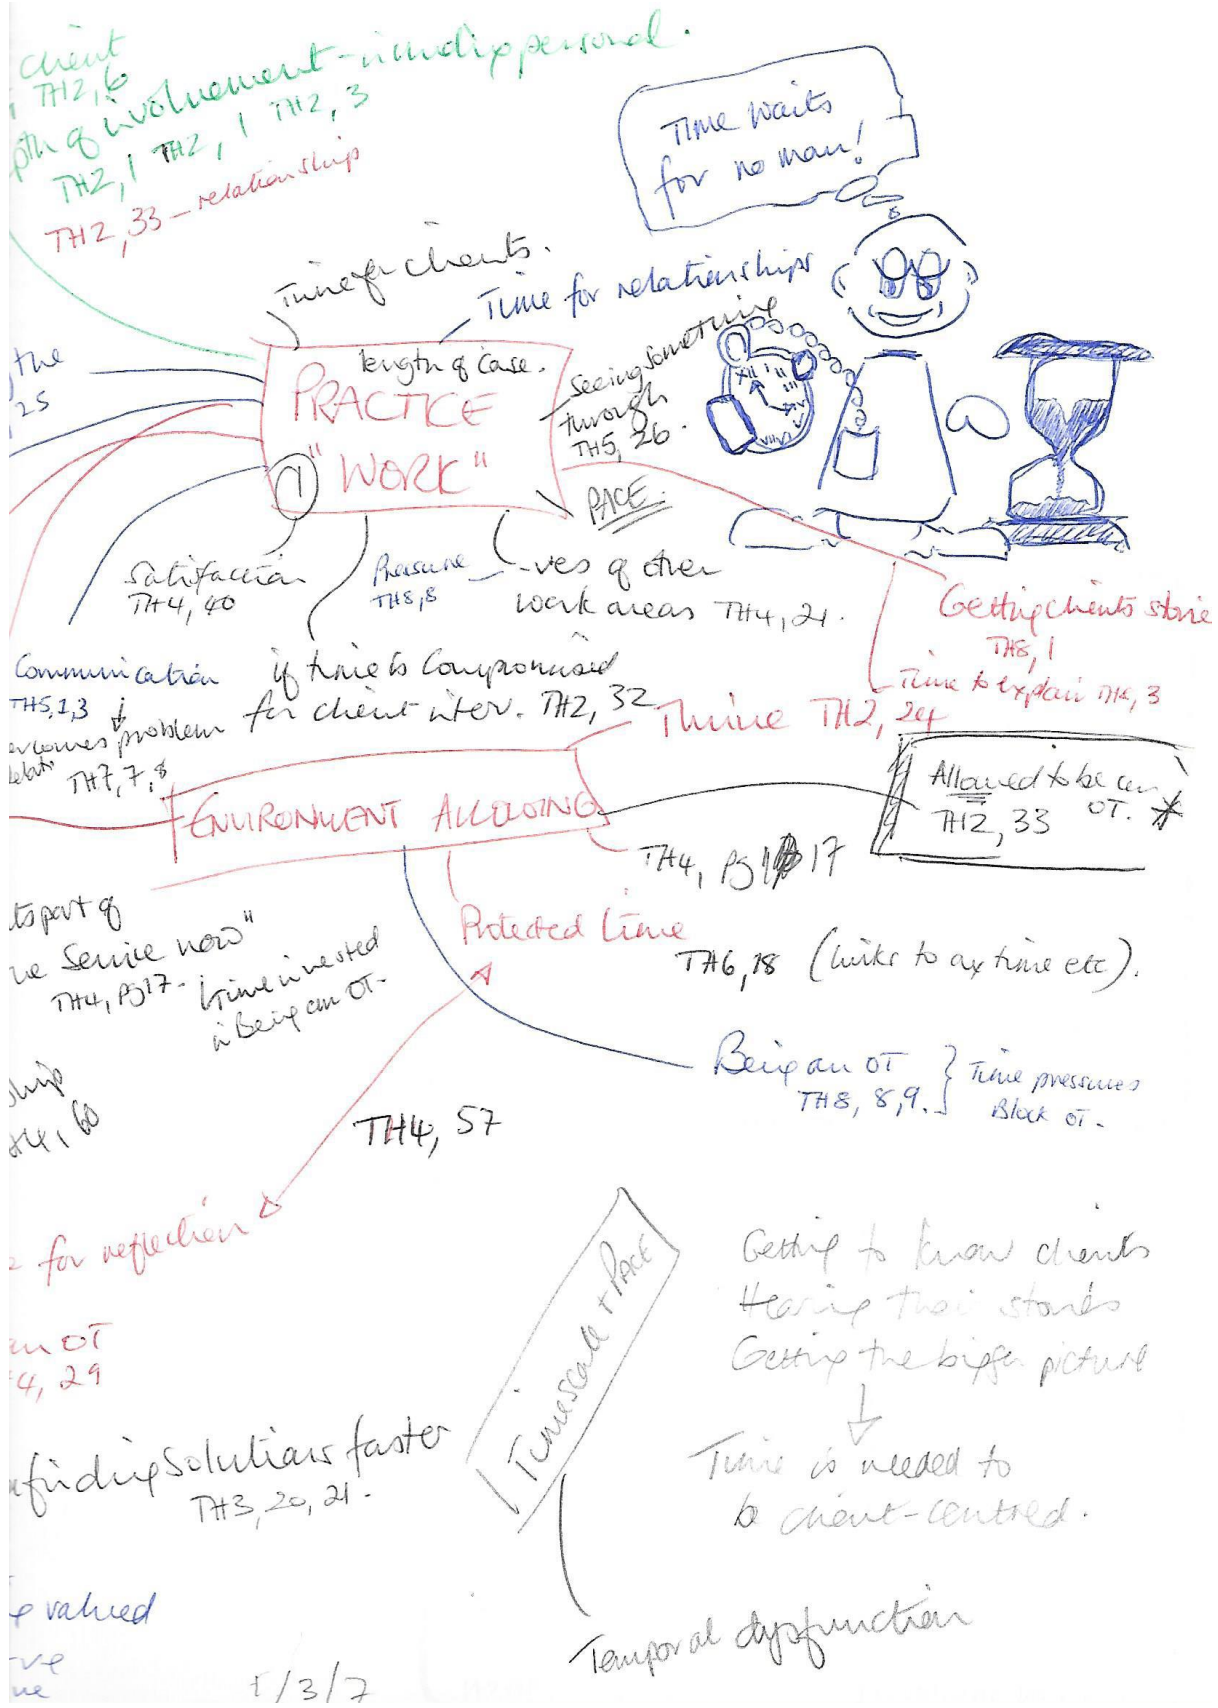 client
TH2, 6
of involvement - including personal.
TH2, 1 TH2, 1 TH2, 3
TH2, 33 - relationship
Time waits
for no man!
Time for clients.
Time for relationships
length of case.
PRACTICE
"WORK"
1
Seeing something
through
TH5, 26.
PACE.
the
25
Satisfaction
TH4, 40
Pressure
TH8, 8
-ves of other
work areas TH4, 21.
Getting clients storie
TH8, 1
Time to explain TH4, 3
Communication
TH5, 1, 3
problem
TH7, 7, 8
if time is compromised
for client inter. TH2, 32
Thrive TH2, 24
ENVIRONMENT ALLOWING
Allowed to be an
OT.
TH2, 33
TH4, pg 17
part of
Service now"
TH4, pg 17.
Time invested
in Being an OT.
Protected time
TH6, 18 (links to ax time etc).
Being an OT
TH8, 8, 9.
Time pressures
Block OT.
60
TH4, 57
for reflection
an OT
4, 29
Timescale + PACE
Getting to know clients
Hearing their stories
Getting the bigger picture
Time is needed to
be client-centred.
finding solutions faster
TH3, 20, 21.
valued
Temporal dysfunction
1/3/7